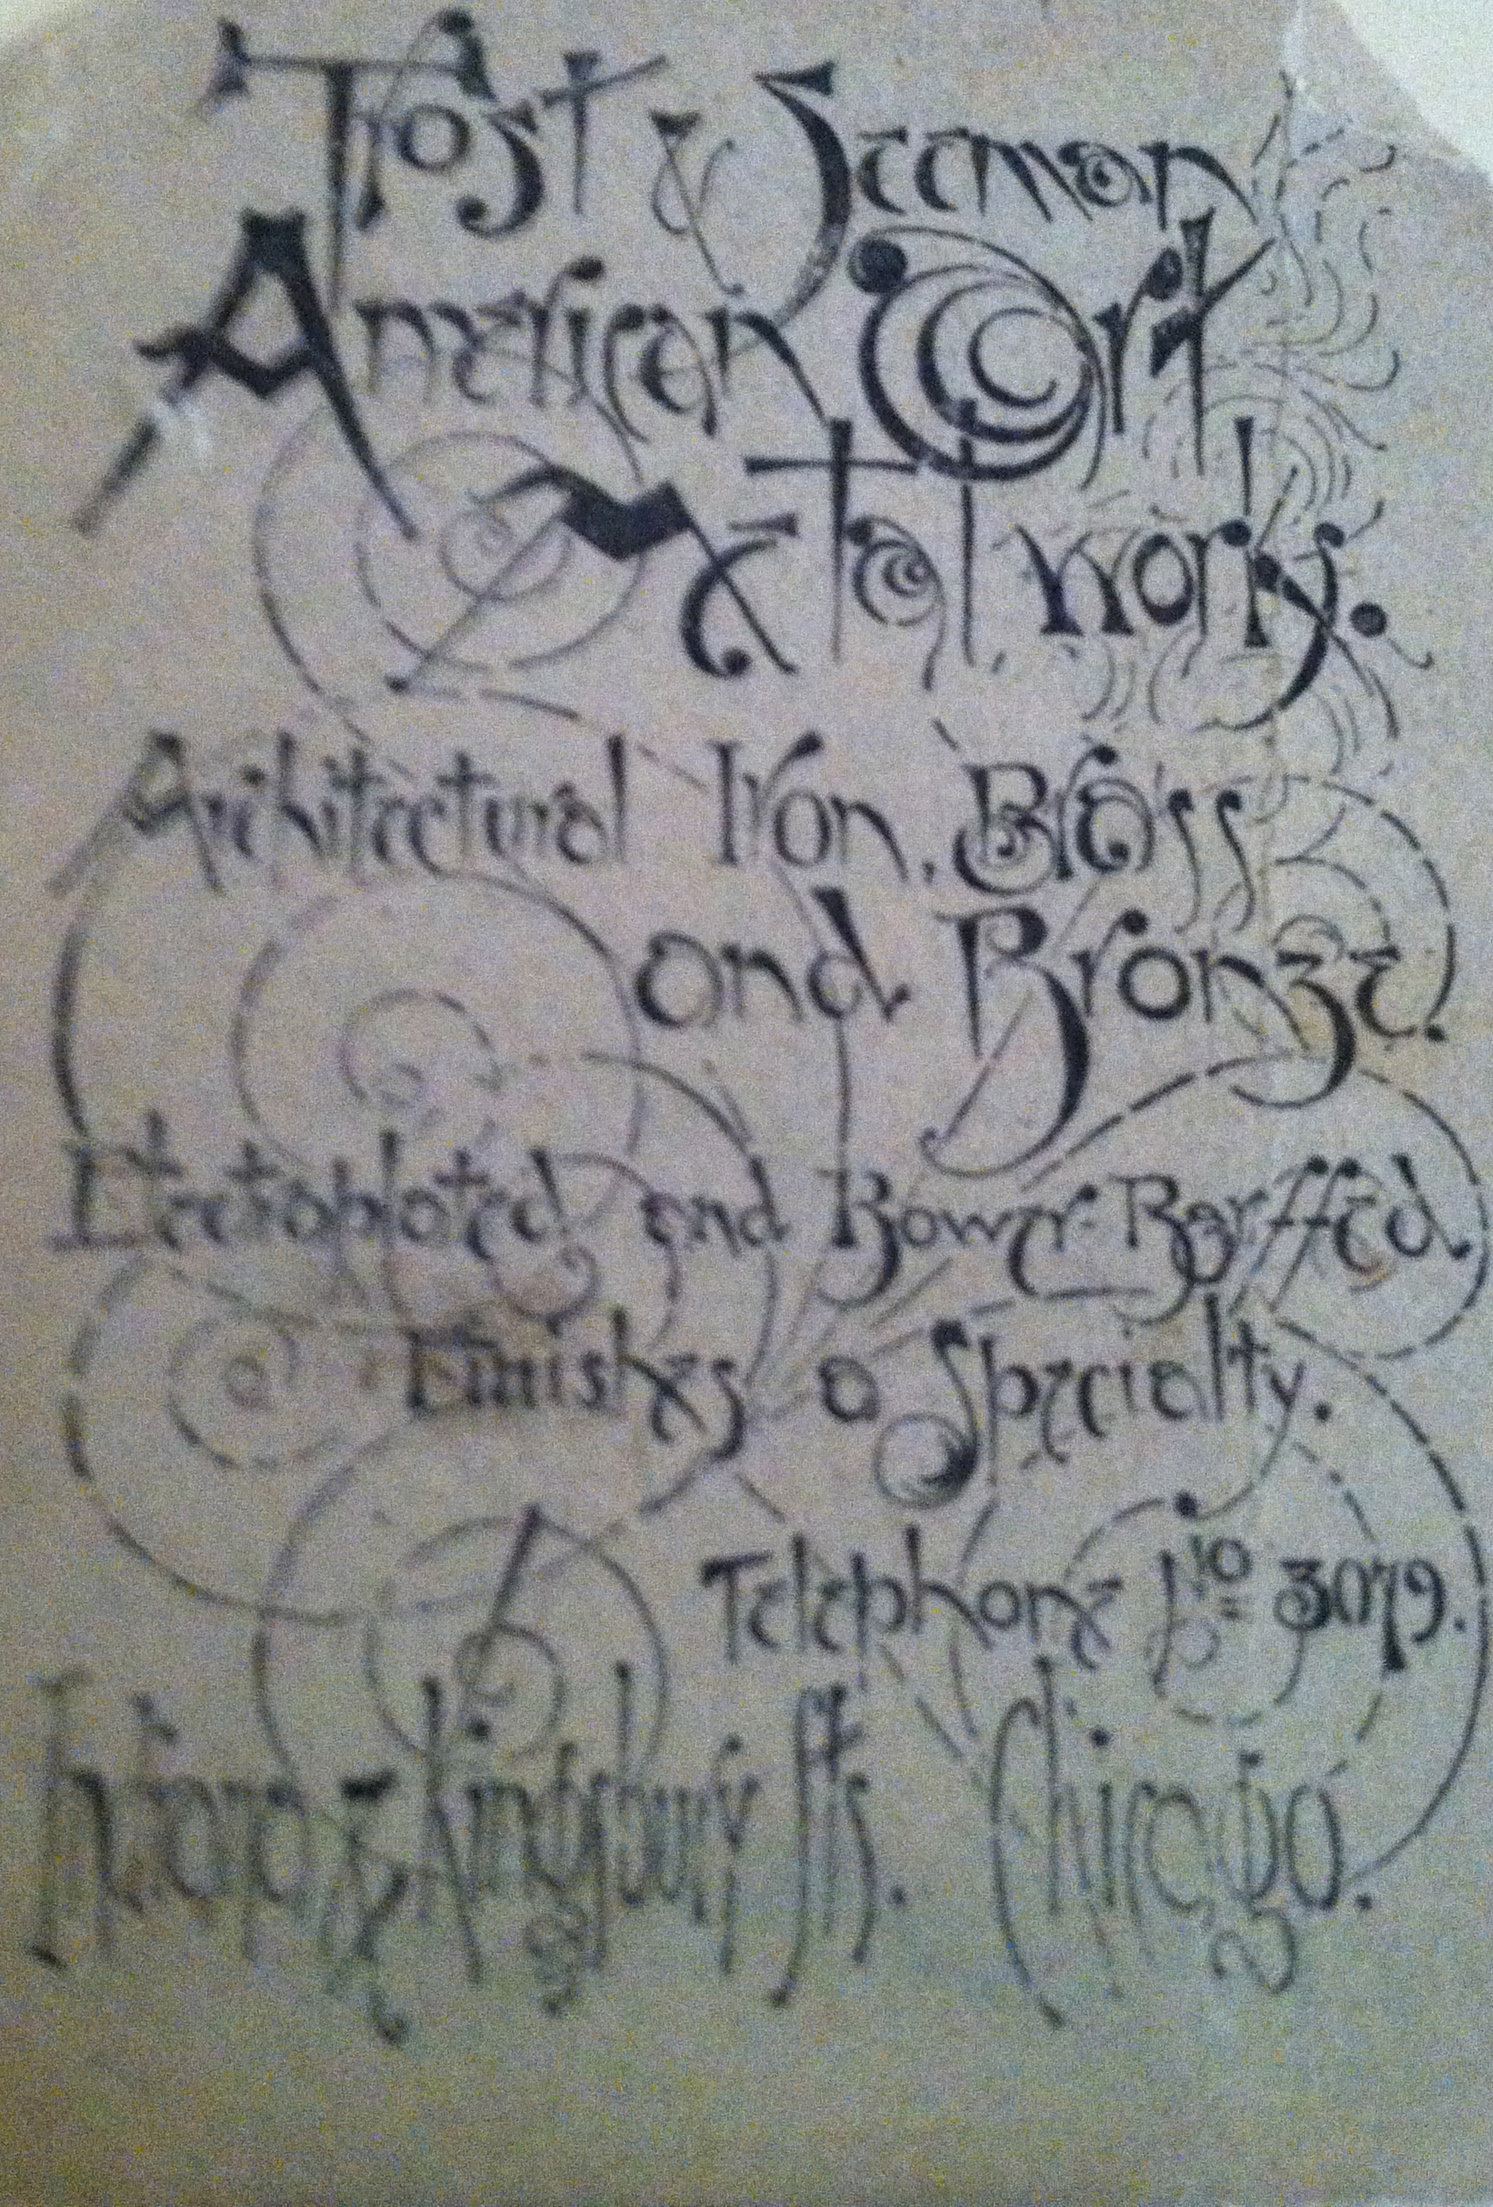 Trost & Seeman
American Art
Metal works.
Architectural Iron, Brass
and Bronze.
Electroplated and Bower-Barffed
Finishes a Specialty.
Telephone No 3079.
& Kingsbury Sts. Chicago.